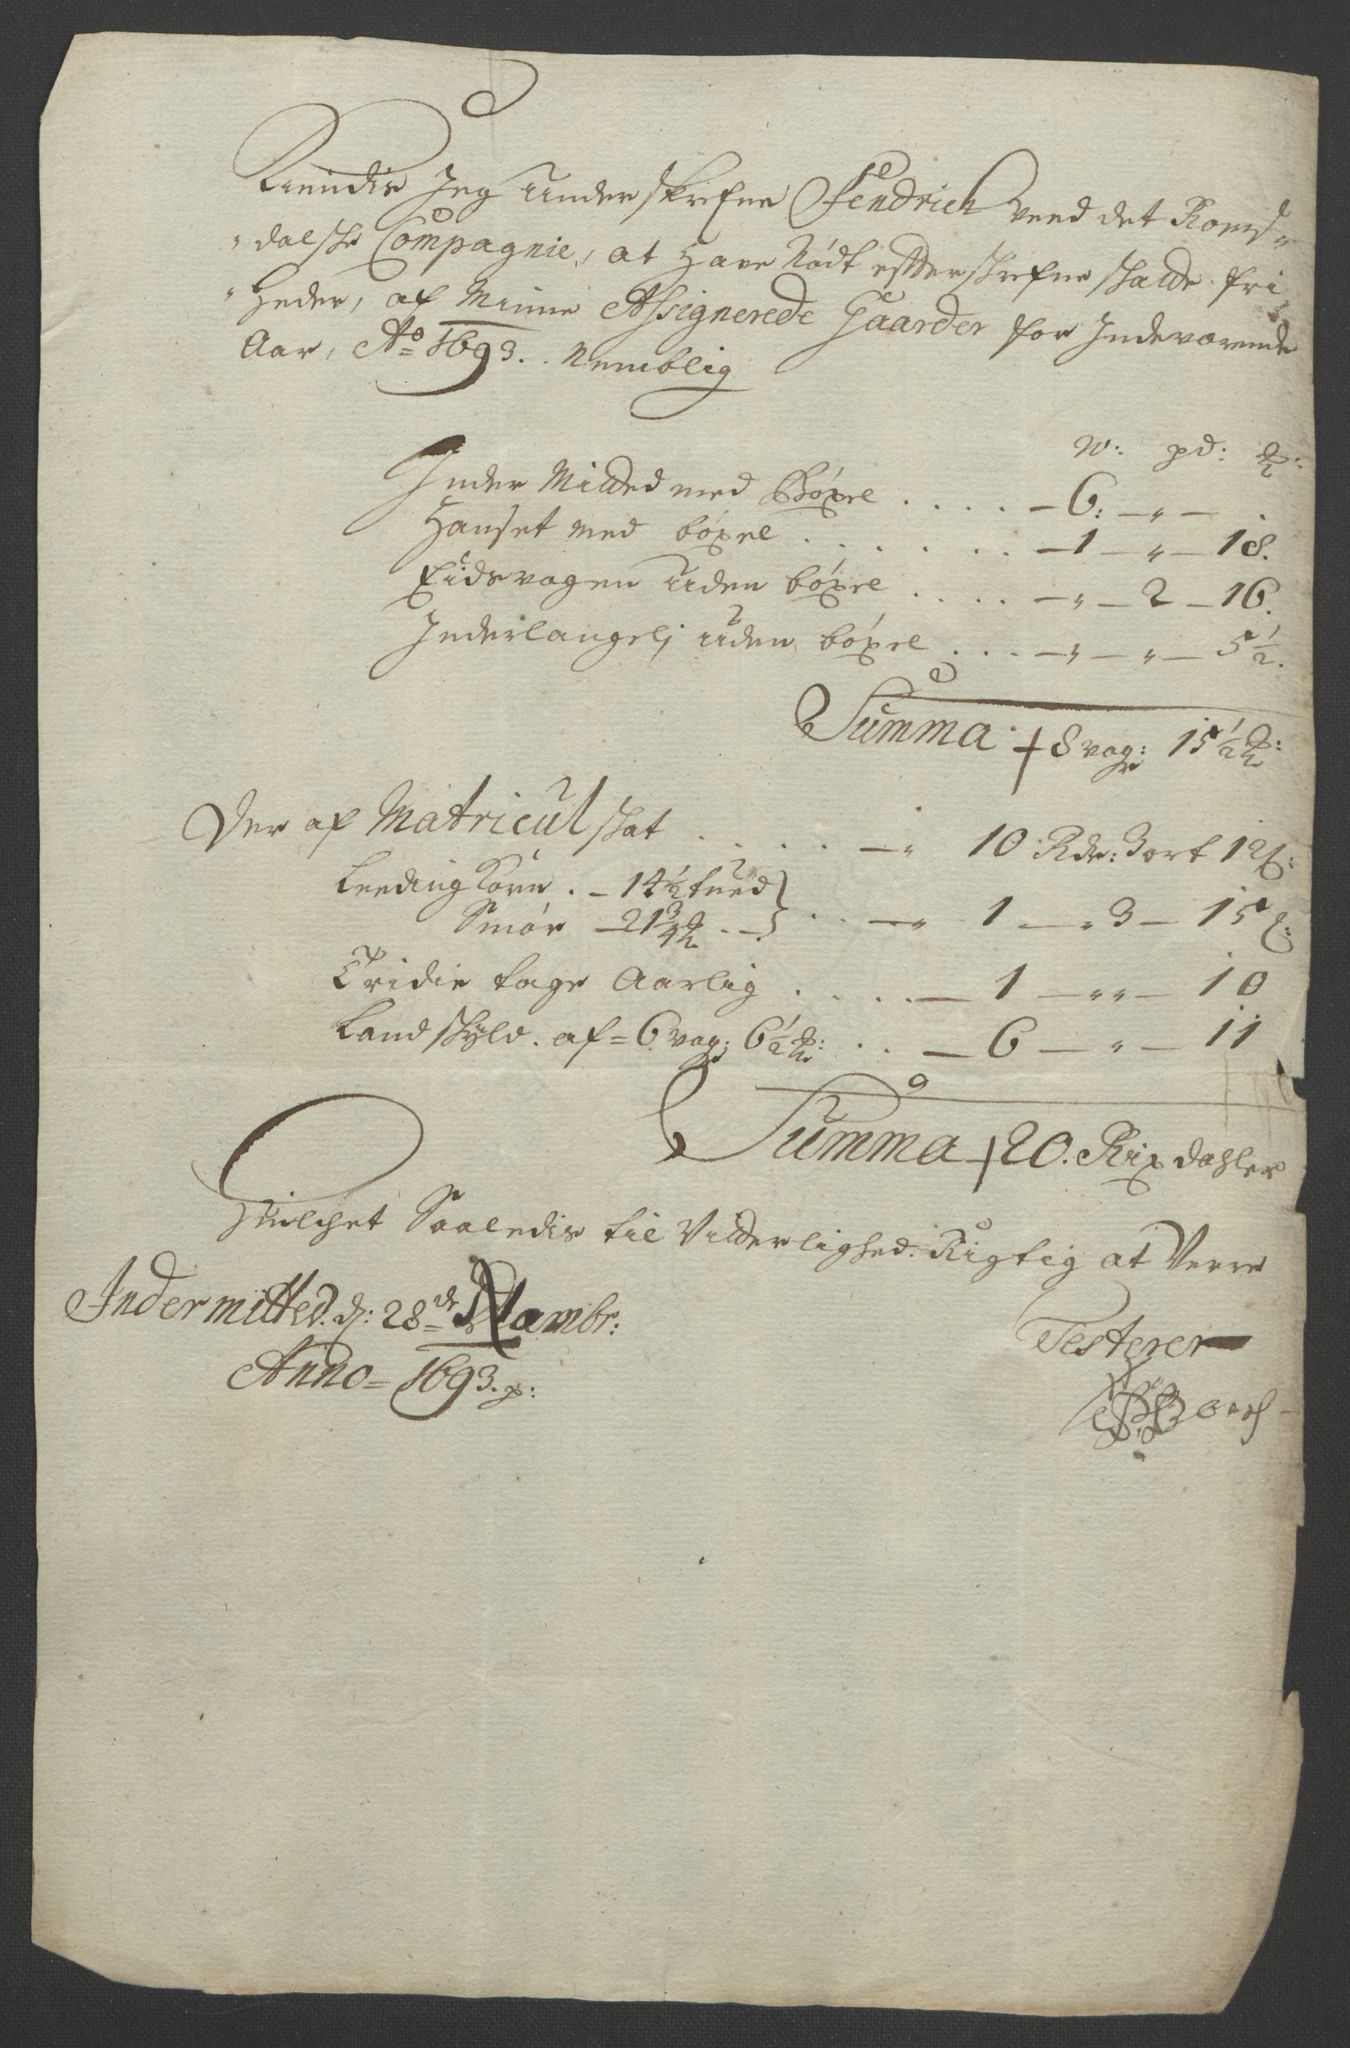 Kiendis Jeg Underskrefne Fendrich veed det Roms=
"dalske Compagnie, at Have Nødt effterskrefne skatte fri
"Heder, af Minne Assignerede Gaarder for Indeværende
Aar, Ao 1693. Nemblig
w: pd: ℔:
Inder Mitted med Bøxel . . . . — 6: — " —
Hanset med bøxel . . . . . . — 1 — " — 18.
Eidsvogen uden bøxel . . . . — " — 2 — 16.
Inderlangelj uden bøxel . . . — " — " — 5½.
Summa + 8 vog: 15½ ℔:
Der af Matricul skat . . . . — " 10 Rdr: 3 ort 12 s:
Leeding Korn . – 14½ 
Smør – 21¾ ℔ . – . . — " 1 — " 3 — 15 s:
Tridie tage Aarlig . . . . — 1 — " " — 10
Landskyld . af = 6 vog: 6½ ℔: . . — 6 — " — 11
Summa + 20. Rix dahler
Huilchet Saaledis til Vitterlighed. Rigtig at Verre
Testerer
Indermitted. d: 28de
Anno = 1693. p: